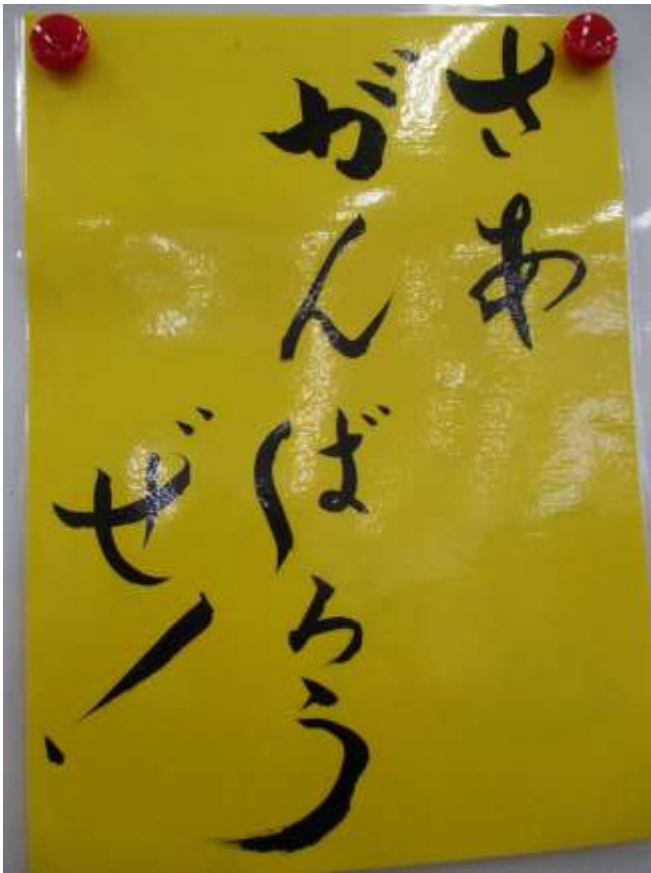 さあ
がんばろう
ぜ!